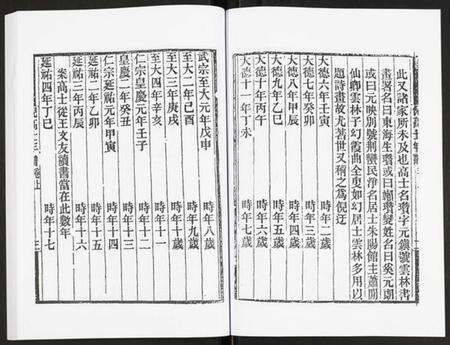 此又諸家所未及也高士名瓚字元鎮號雲林書
畫署名曰東海生瓚或曰嬾瓚變姓名曰奚元朗
或曰元映別號荆蠻民淨名居士朱陽館主蕭閒
仙卿雲林子幻霞曲全叟如幻居士雲林多用以
題詩畫故尤著世又稱之為倪迂
大德六年壬寅 時年二歲
大德七年癸卯 時年三歲
大德八年甲辰 時年四歲
大德九年乙巳 時年五歲
大德十年丙午 時年六歲
大德十一年丁未 時年七歲
武宗至大元年戊申 時年八歲
至大二年己酉 時年九歲
至大三年庚戌 時年十歲
至大四年辛亥 時年十一
仁宗皇慶元年壬子 時年十二
皇慶二年癸丑 時年十三
仁宗延祐元年甲寅 時年十四
延祐二年乙卯 時年十五
延祐三年丙辰 時年十六
案高士從王文友讀書當在此數年
延祐四年丁巳 時年十七